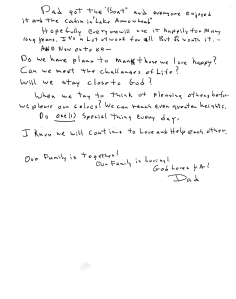 Dad got the "Boat" and everyone enjoyed
it and the cabin in "Lake Arrowhead"
Hopefully everyone will use it happily for many
long years. It's a lot of work for all But its worth it. -
And Now onto 84 -
Do we have plans to make those we love happy?
Can we meet the challenges of Life?
Will we stay close to God?
When we try to think of pleasing others before
we please our selves? We can reach even greater heights.
Do one (1) Special thing Every day.
I know we will continue to Love and Help each other.
Our Family is Together!
Our Family is Loving!
God Loves
Dad